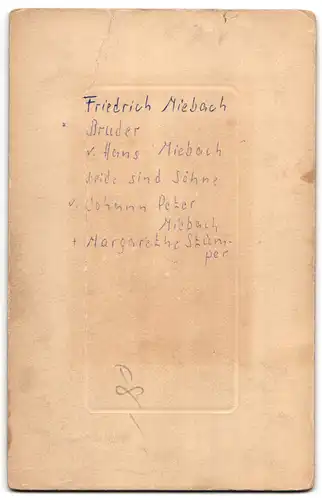 Friedrich Miebach
Bruder
v. Hans Miebach
beide sind Söhne
v. Johann Peter
Miebach
+ Margarethe Stüm-
per